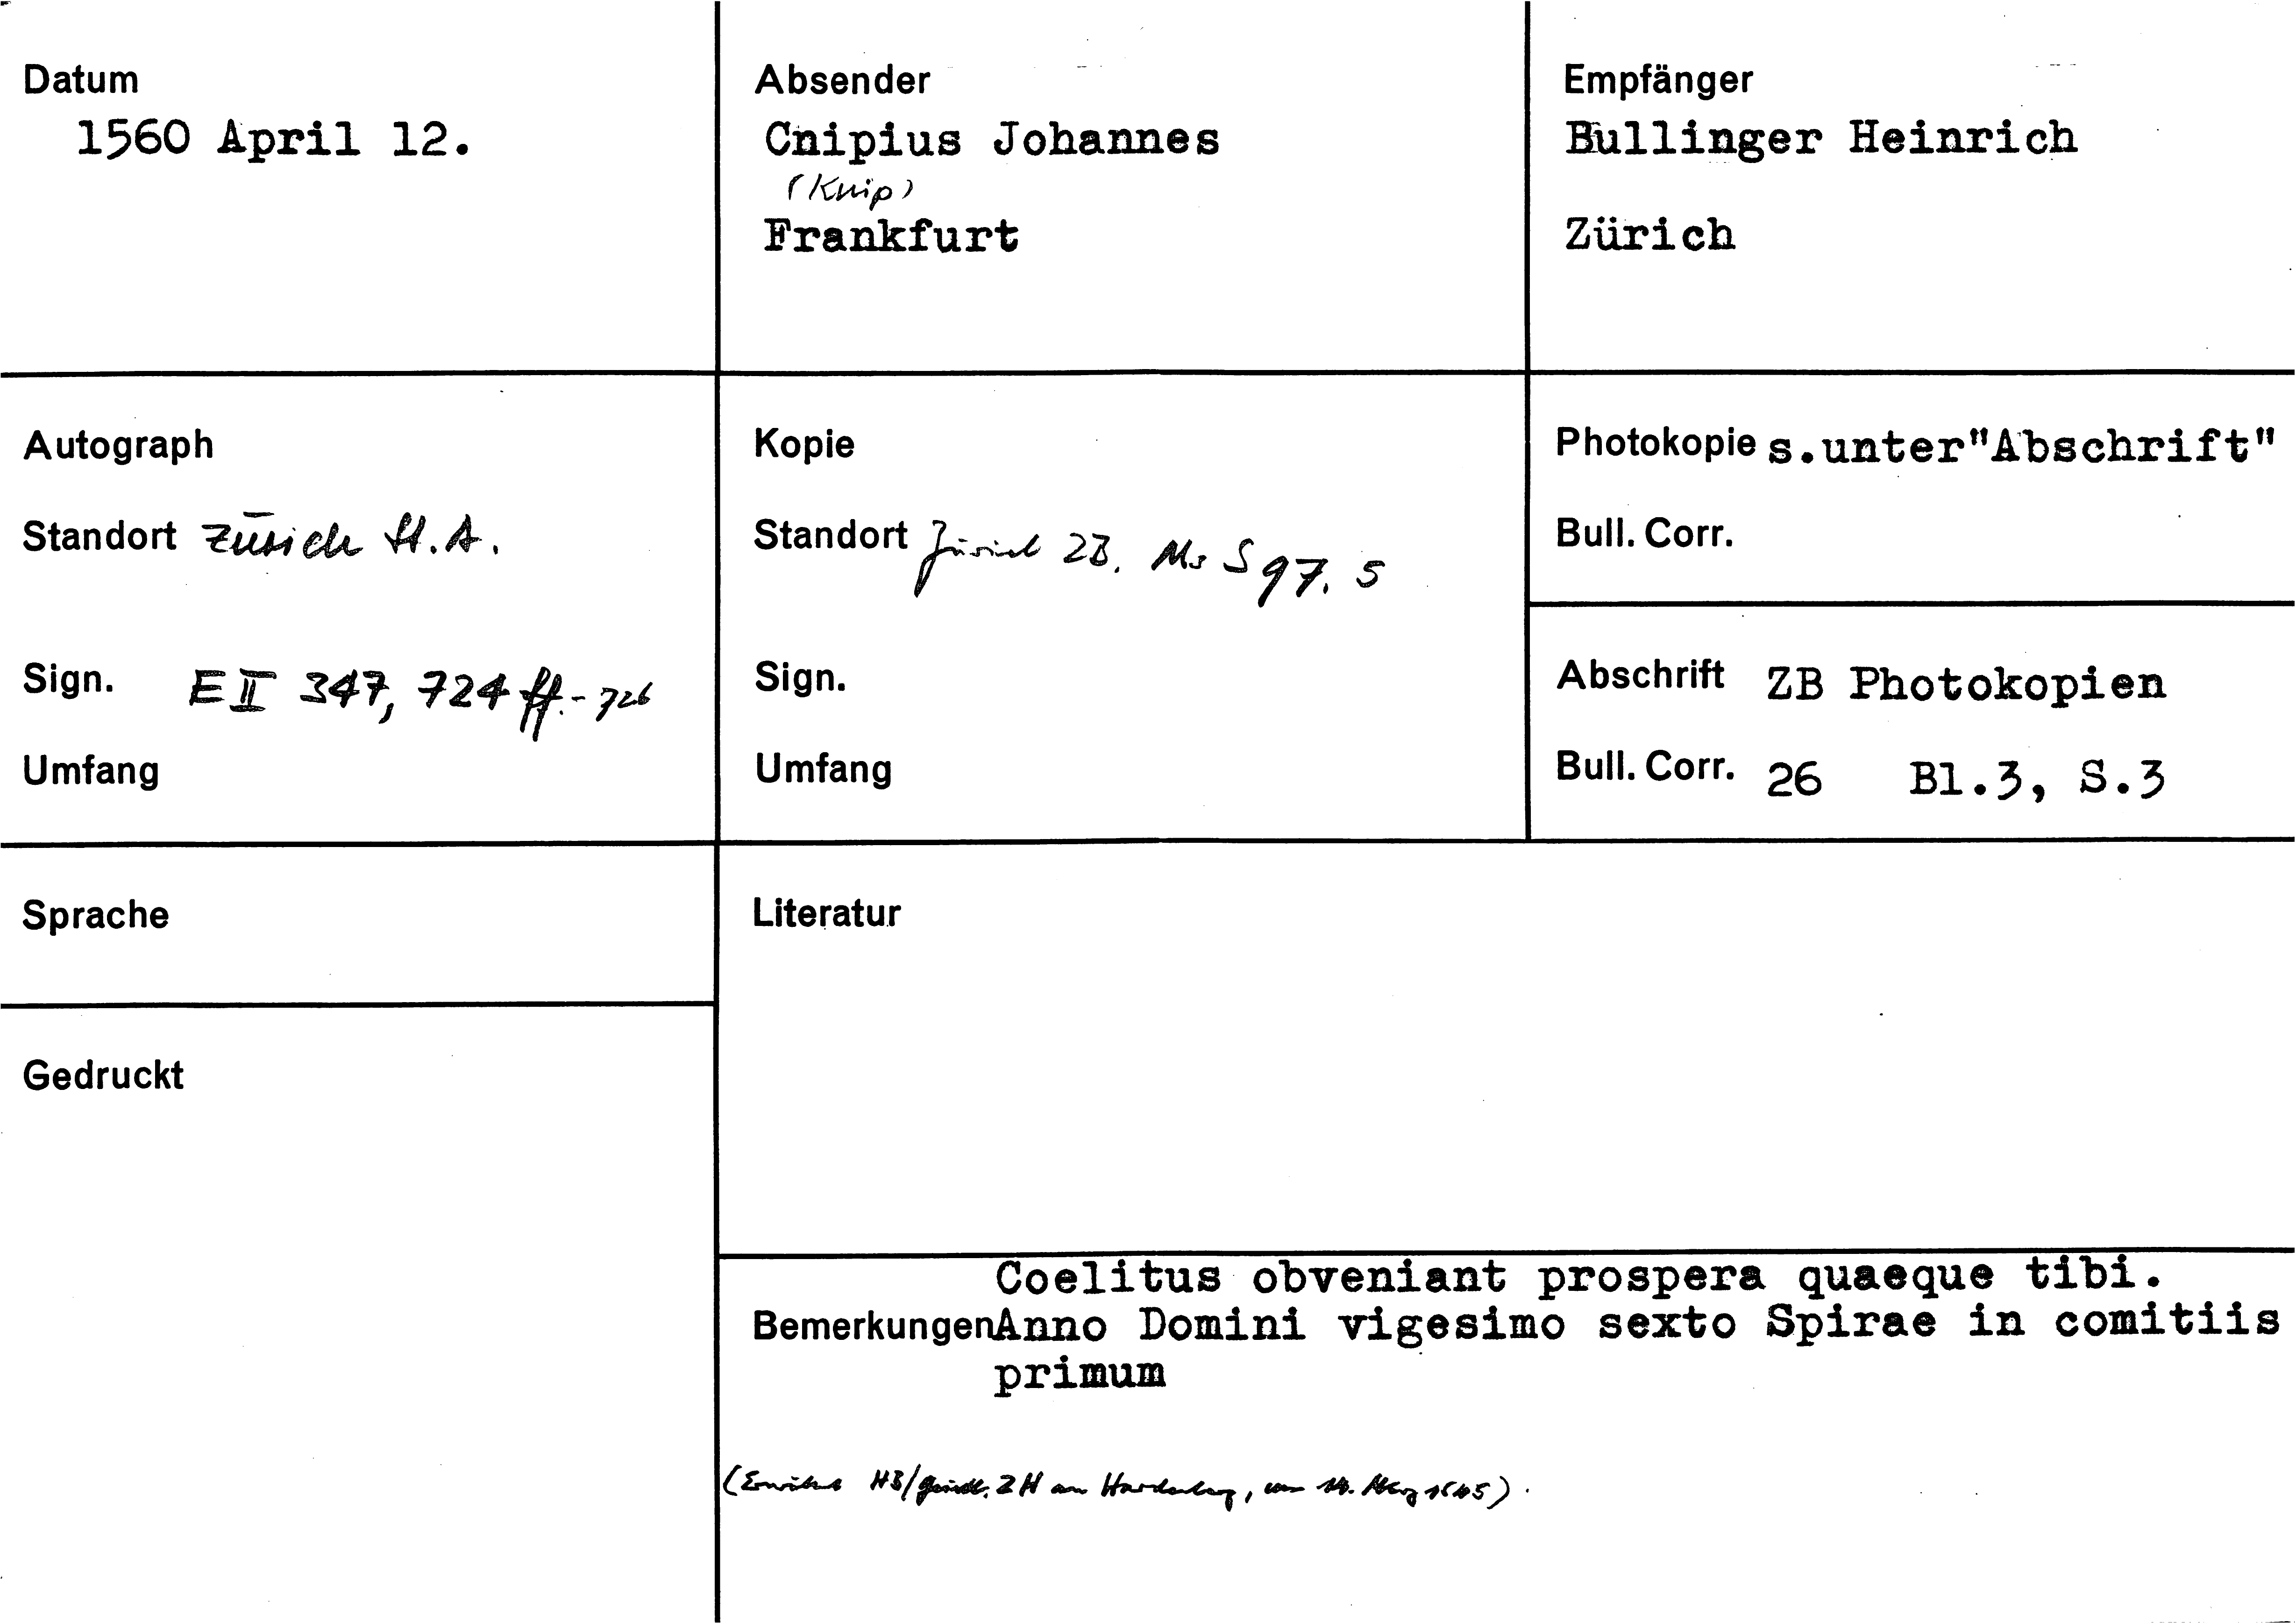 Datum
1560 April 12.
Absender
Cnipius Johannes
(Knip)
Frankfurt
Empfänger
Bullinger Heinrich
Zürich
Autograph
Standort Zürich St.A.
Sign. E II 347, 724 ff. - 726
Umfang
Kopie
Standort Zürich ZB. Ms S 97. 5
Sign.
Umfang
Photokopie s.unter"Abschrift"
Bull. Corr.
Abschrift ZB Photokopien
Bull. Corr. 26 Bl.3, S.3
Sprache
Gedruckt
Literatur
Coelitus obveniant prospera quaeque tibi.
Bemerkungen Anno Domini vigesimo sexto Spirae in comitiis
primum
HB/ ZH an Hardenberg, 14. März 1545).